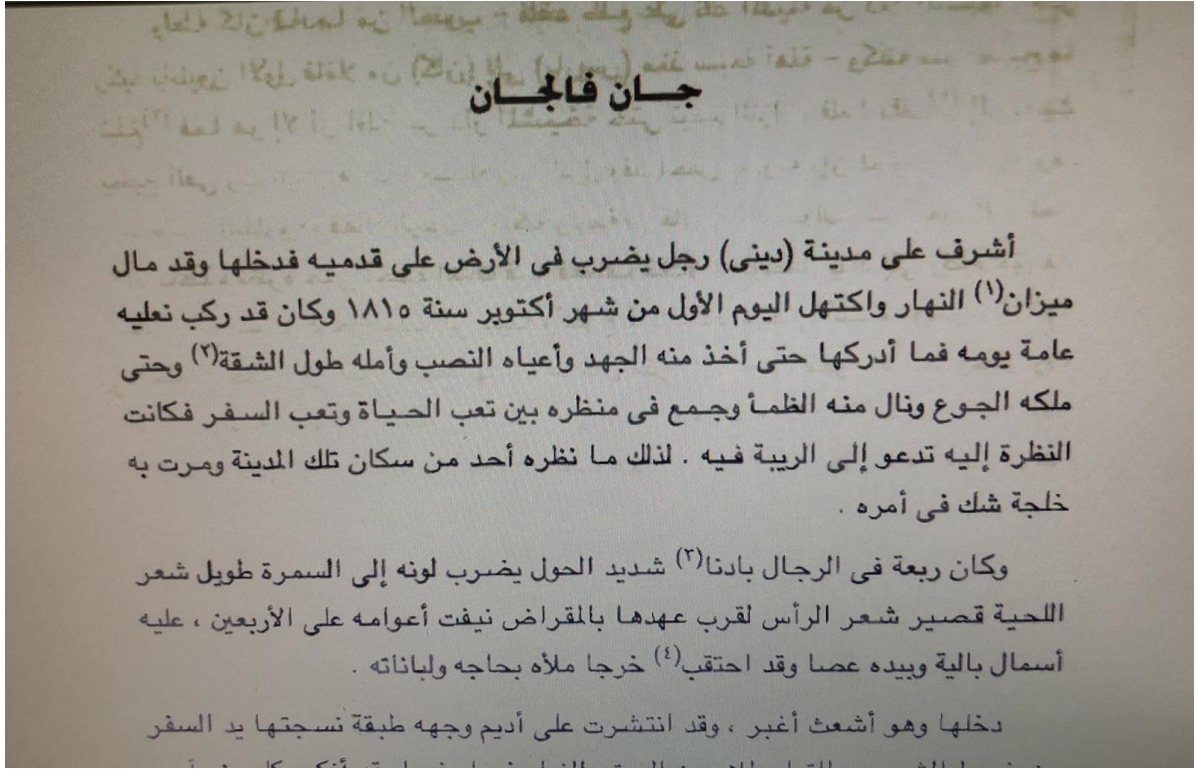 جان فالجان
أشرف على مدينة (دينى) رجل يضرب فى الأرض على قدميه فدخلها وقد مال
ميزان(١) النهار واكتهل اليوم الأول من شهر أكتوبر سنة ١٨١٥ وكان قد ركب نعليه
عامة يومه فما أدركها حتى أخذ منه الجهد وأعياه النصب وأمله طول الشقة(٢) وحتى
ملكه الجوع ونال منه الظمأ وجمع فى منظره بين تعب الحياة وتعب السفر فكانت
النظرة إليه تدعو إلى الريبة فيه . لذلك ما نظره أحد من سكان تلك المدينة ومرت به
خلجة شك فى أمره .
وكان ربعة فى الرجال بادنا(٣) شديد الحول يضرب لونه إلى السمرة طويل شعر
اللحية قصير شعر الرأس لقرب عهدها بالمقراض نيفت أعوامه على الأربعين ، عليه
أسمال بالية وبيده عصا وقد احتقب(٤) خرجا ملأه بحاجه ولباناته .
دخلها وهو أشعث أغبر ، وقد انتشرت على أديم وجهه طبقة نسجتها يد السفر